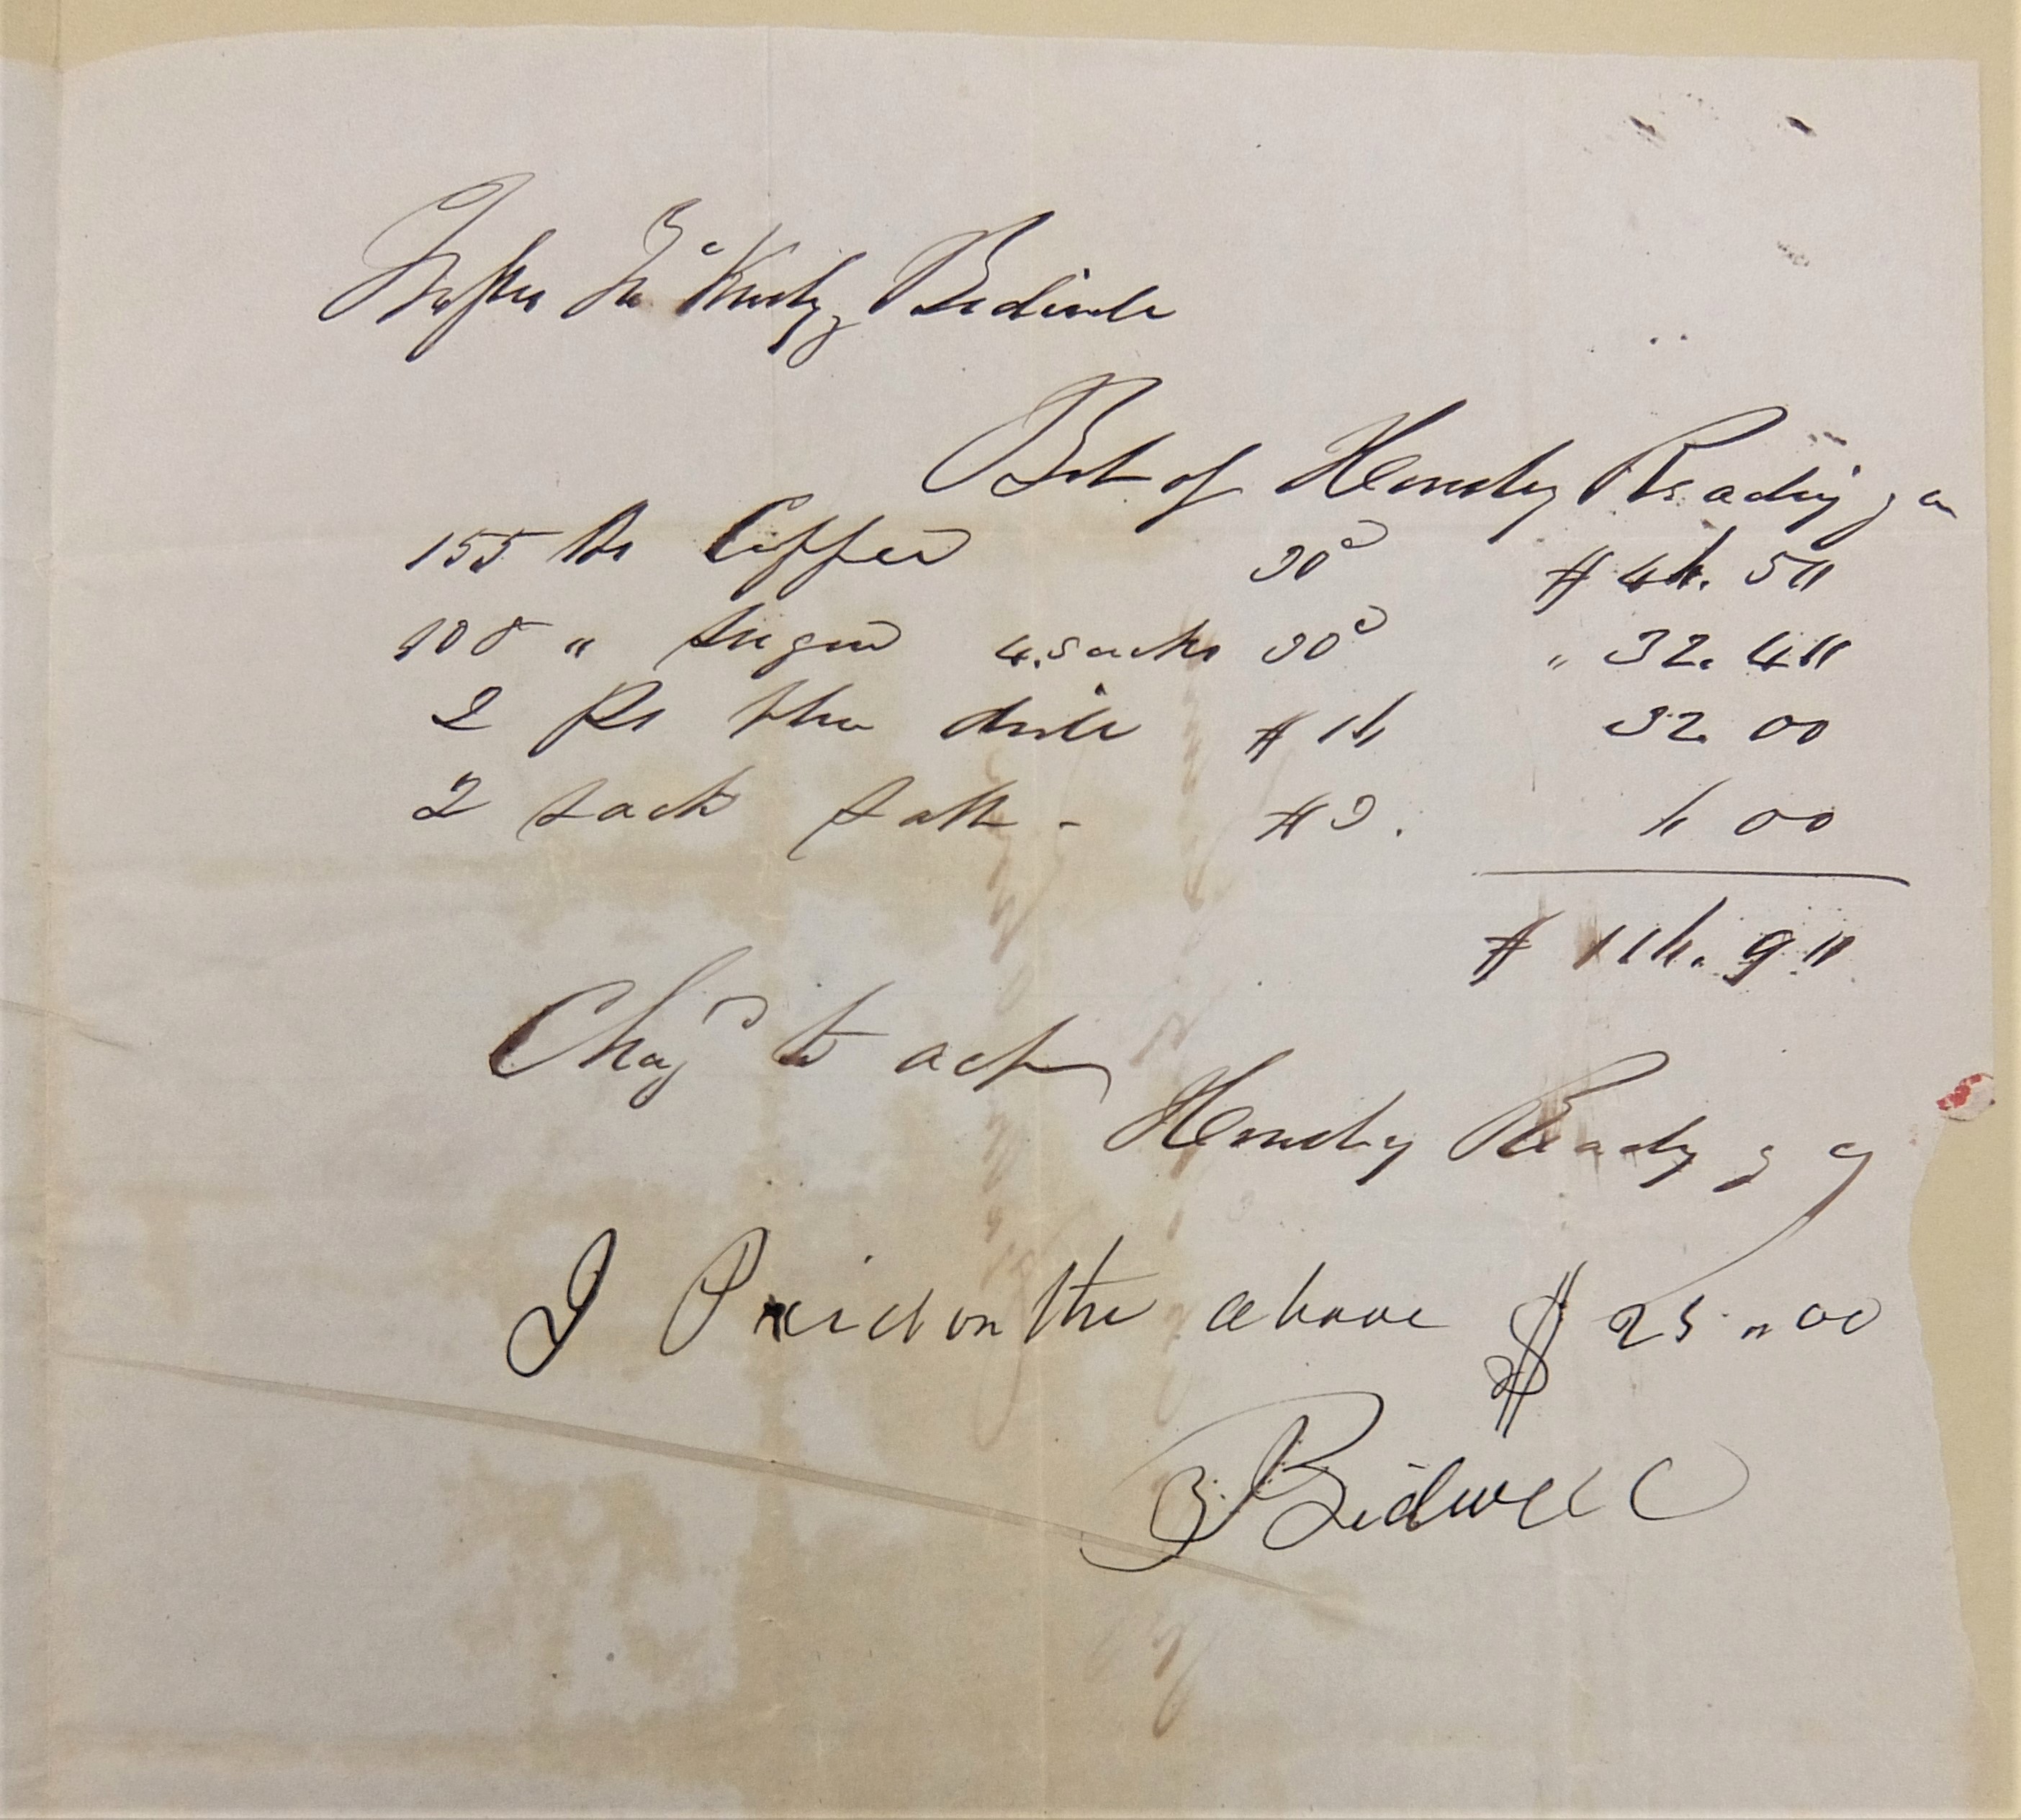 Messrs Bidwell
Bot of Hensley Reading & Co
155 lbs Coffee 30c $46.50
108 " sugar 4 sacks 30c " 32.40
2 Ps blue drill $16 32.00
2 sack salt - $3. 6 00
$116.90
Chgd to act
Hensley Reading & Co
I Paid on the above $25.00
J Bidwell